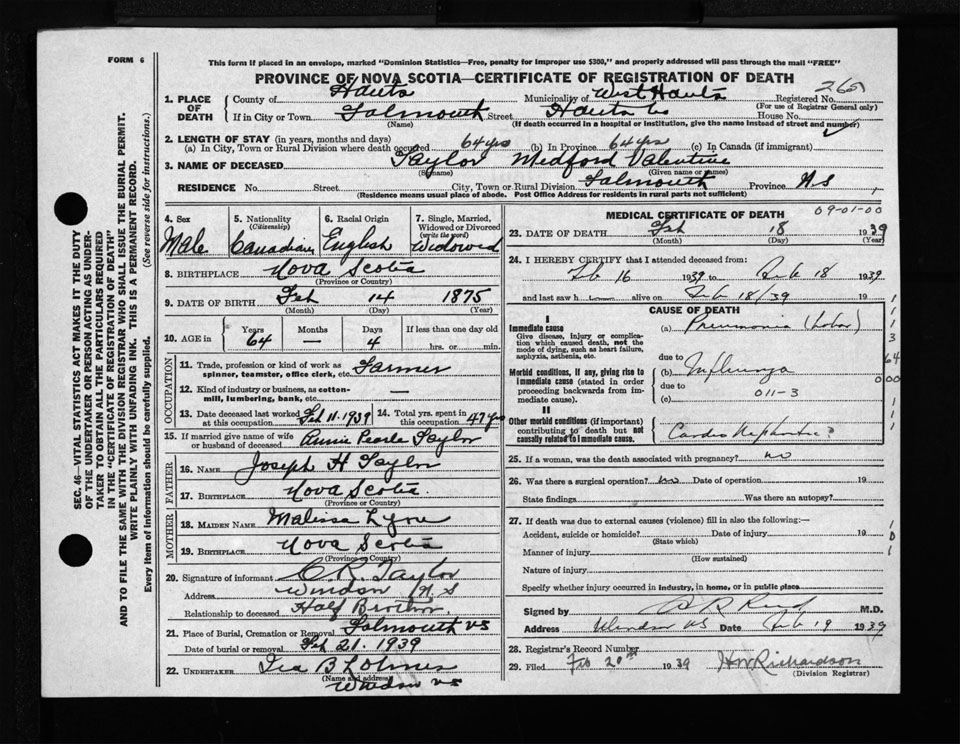 FORM 6
This form if placed in an envelope, marked "Dominion Statistics—Free, penalty for improper use $300," and properly addressed will pass through the mail "FREE"
PROVINCE OF NOVA SCOTIA—CERTIFICATE OF REGISTRATION OF DEATH
1. PLACE OF DEATH
County of Hants Municipality of West Hants Registered No.
(For use of Registrar General only)
If in City or Town Falmouth Street Hants Co House No.
(Name) (If death occurred in a hospital or institution, give the name instead of street and number)
2. LENGTH OF STAY (in years, months and days)
(a) In City, Town or Rural Division where death occurred 64 yrs (b) In Province 64 yrs (c) In Canada (if immigrant)
3. NAME OF DECEASED Taylor Medford Valentine
(Surname) (Given name or names)
RESIDENCE No. Street City, Town or Rural Division Falmouth Province N S
(Residence means usual place of abode. Post Office Address for residents in rural parts not sufficient)
4. Sex Male
5. Nationality (Citizenship) Canadian
6. Racial Origin English
7. Single, Married, Widowed or Divorced (write the word) Widowed
8. BIRTHPLACE Nova Scotia
(Province or Country)
9. DATE OF BIRTH Feb 14 1875
(Month) (Day) (Year)
10. AGE in Years 64 Months — Days 4 If less than one day old hrs. or min.
OCCUPATION
11. Trade, profession or kind of work as spinner, teamster, office clerk, etc. Farmer
12. Kind of industry or business, as cotton-mill, lumbering, bank, etc. —
13. Date deceased last worked at this occupation Feb 11. 1939 14. Total yrs. spent in this occupation 47 yrs
15. If married give name of wife or husband of deceased Annie Pearle Taylor
FATHER
16. NAME Joseph H Taylor
17. BIRTHPLACE Nova Scotia.
(Province or Country)
MOTHER
18. MAIDEN NAME Malissa
19. BIRTHPLACE Nova Scotia
(Province or Country)
20. Signature of informant Taylor
Address Windsor N. S
Relationship to deceased Half Brother
21. Place of Burial, Cremation or Removal Falmouth NS
Date of burial or removal Feb 21. 1939
22. UNDERTAKER Ira B Lohnes
(Name and address) Windsor NS
MEDICAL CERTIFICATE OF DEATH 09-01-00
23. DATE OF DEATH Feb 18 1939
(Month) (Day) (Year)
24. I HEREBY CERTIFY that I attended deceased from:
Feb 16 1939 to Feb 18 1939
and last saw h alive on Feb 18/39 19
CAUSE OF DEATH
I
Immediate cause
Give disease, injury or complication which caused death, not the mode of dying, such as heart failure, asphyxia, asthenia, etc.
(a) Pneumonia (Lobar)
due to
Morbid conditions, if any, giving rise to immediate cause (stated in order proceeding backwards from immediate cause).
(b) Influenza
due to 011-3
(c)
II
Other morbid conditions (if important) contributing to death but not causally related to immediate cause.
Cardio Nephritic
25. If a woman, was the death associated with pregnancy? no
26. Was there a surgical operation? no Date of operation 19
State findings Was there an autopsy?
27. If death was due to external causes (violence) fill in also the following:—
Accident, suicide or homicide? Date of injury 19
(State which)
Manner of injury
(How sustained)
Nature of injury
Specify whether injury occurred in industry, in home, or in public place
Signed by M.D.
Address Windsor NS Date Feb 19 1939
28. Registrar's Record Number
29. Filed Feb 20th 1939 H W Richardson
(Division Registrar)
SEC. 46—VITAL STATISTICS ACT MAKES IT THE DUTY
OF THE UNDERTAKER OR PERSON ACTING AS UNDER-
TAKER TO OBTAIN ALL THE PARTICULARS REQUIRED
IN THE "CERTIFICATE OF REGISTRATION OF DEATH"
AND TO FILE THE SAME WITH THE DIVISION REGISTRAR WHO SHALL ISSUE THE BURIAL PERMIT.
WRITE PLAINLY WITH UNFADING INK. THIS IS A PERMANENT RECORD.
Every item of information should be carefully supplied. (See reverse side for instructions.)